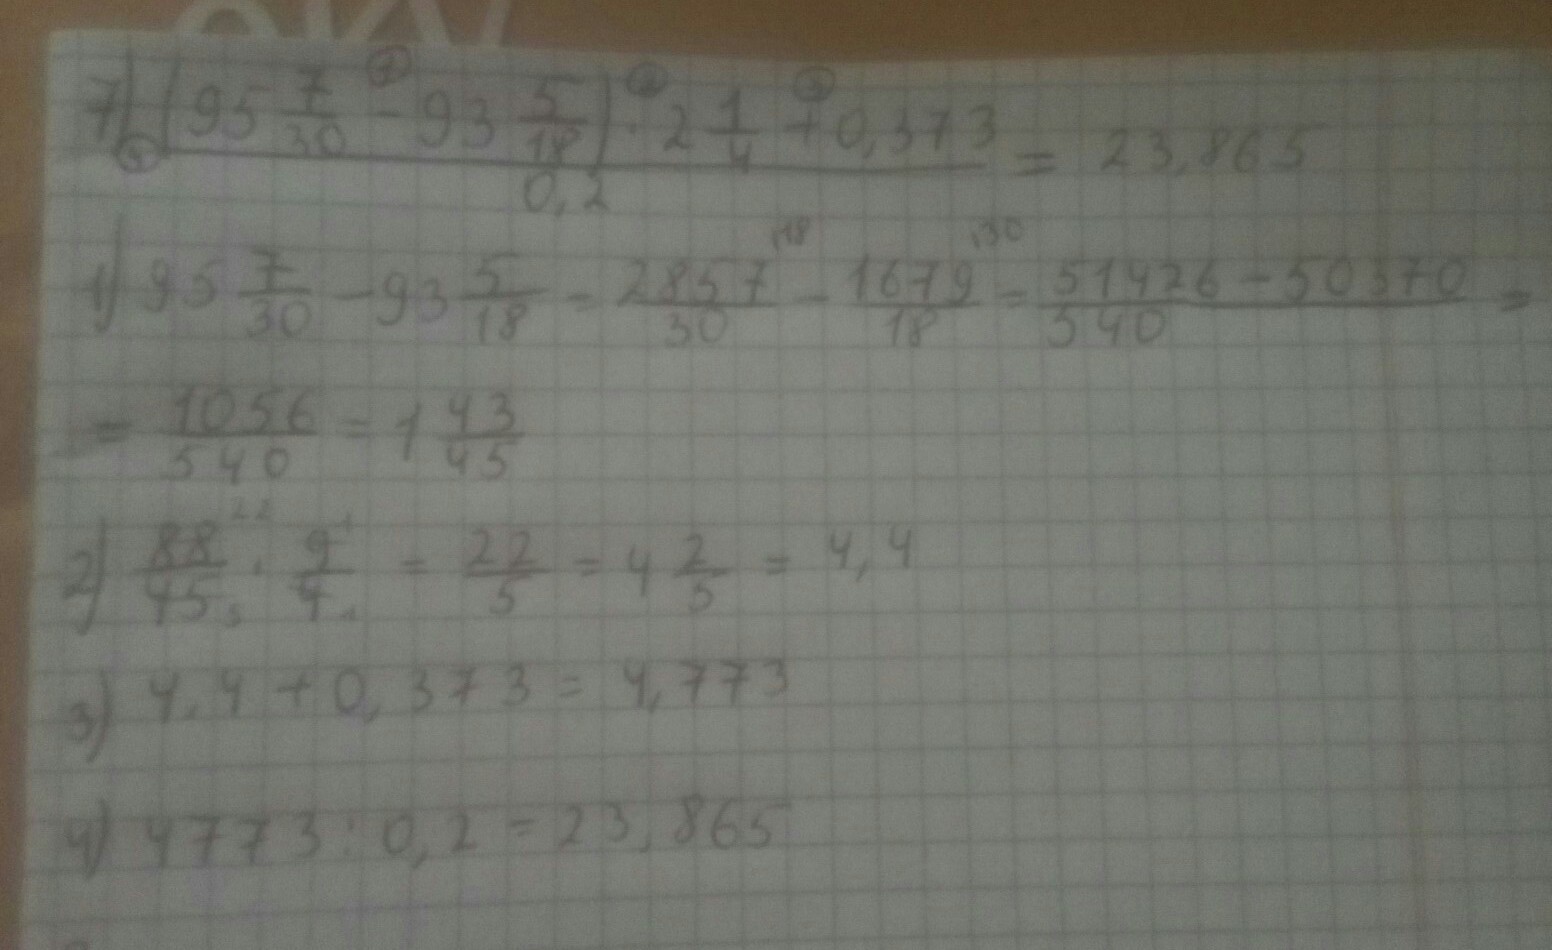 7) ((95 7/30 - 93 5/18) · 2 1/4 + 0,373) / 0,2 = 23,865
1) 95 7/30 - 93 5/18 = 2857/30 - 1679/18 = (51426 - 50370)/540 =
= 1056/540 = 1 43/45
2) 88/45 · 9/4 = 22/5 = 4 2/5 = 4,4
3) 4,4 + 0,373 = 4,773
4) 4773 : 0,2 = 23,865